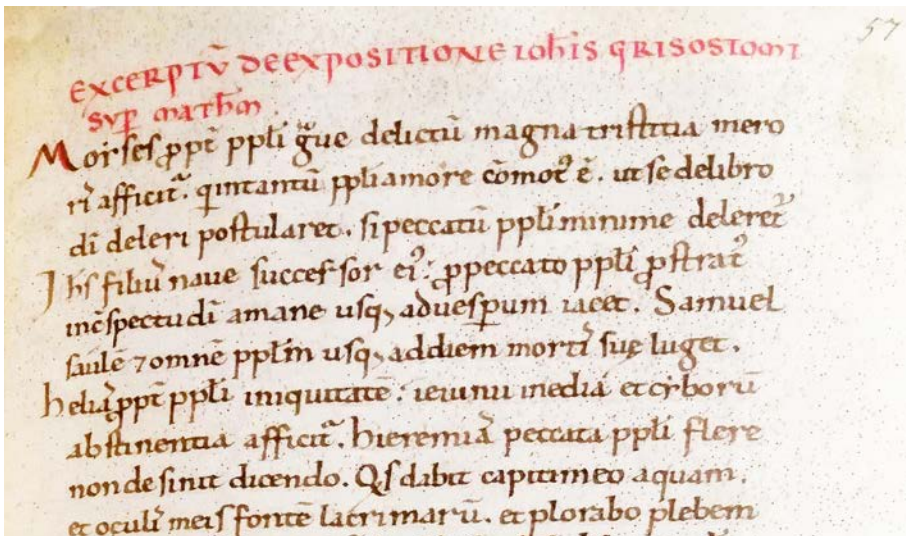 57
EXCERPTV̄ DE EXPOSITIONE IOH̄IS QRISOSTOMI
SVP̄ MATH̄M
Moyses ꝓpt̄ ppl̄i gͣue delictū magna tristitia mero
ri afficit᷑. qui in tantū ppl̄i amore cōmotꝰ ē. ut se de libro
dī deleri postularet. si peccatū ppl̄i minime deleret᷑
Ih̄s filiꝰ naue successor eiꝰ. ꝓ peccato ppl̄i ꝓstratꝰ
in c̄spectu dī a mane usq; ad uesꝑum iacet. Samuel
saulē ⁊ omnē ppl̄m usq; ad diem mortis suę luget.
helias ꝓpt̄ ppl̄i iniquitatē. ieiunii media et cyborū
abstinentia afficit᷑. hieremias peccata ppl̄i flere
non desinit dicendo. Qs dabit capiti meo aquam.
et oculis meis fontē lacrimarū. et plorabo plebem